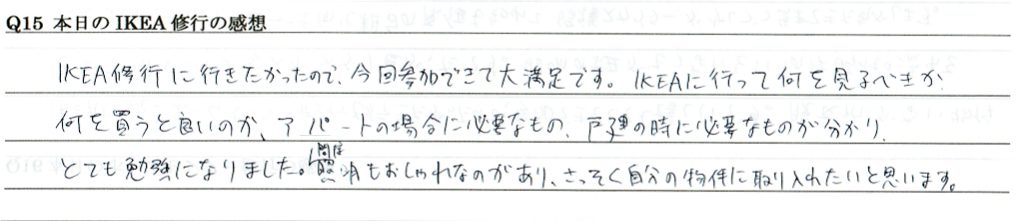 Q15 本日の IKEA 修行の感想
IKEA修行に行きたかったので、今回参加できて大満足です。IKEAに行って何を見るべきか
何を買うと良いのか、アパートの場合に必要なもの、戸建の時に必要なものが分かり、
とても勉強になりました。照明もおしゃれなのがあり、さっそく自分の物件に取り入れたいと思います。